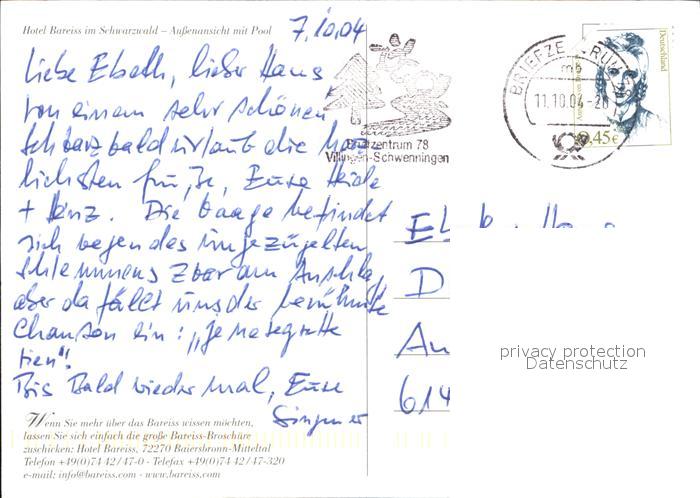 Hotel Bareiss im Schwarzwald – Außenansicht mit Pool
7.10.04
Liebe Elbeth, lieber Hans
von einem sehr schönen
Schwarzwaldurlaub die herz-
lichsten Grüße, Eure Heide
+ Heinz. Die Waage befindet
sich wegen des ungezügelten
Schlemmens zwar am Anschlag,
aber da fällt uns der berühmte
Chanson ein: „Je ne regrette
rien“!
Bis Bald wieder mal, Eure
Wenn Sie mehr über das Bareiss wissen möchten,
lassen Sie sich einfach die große Bareiss-Broschüre
zuschicken: Hotel Bareiss, 72270 Baiersbronn-Mitteltal
Telefon +49(0)74 42/47-0 · Telefax +49(0)74 42/47-320
e-mail: info@bareiss.com · www.bareiss.com
Briefzentrum 78
Villingen-Schwenningen
BRIEFZENTRUM
mb
11.10.04-20
Deutschland
0,45€
El
D
An
614
privacy protection
Datenschutz